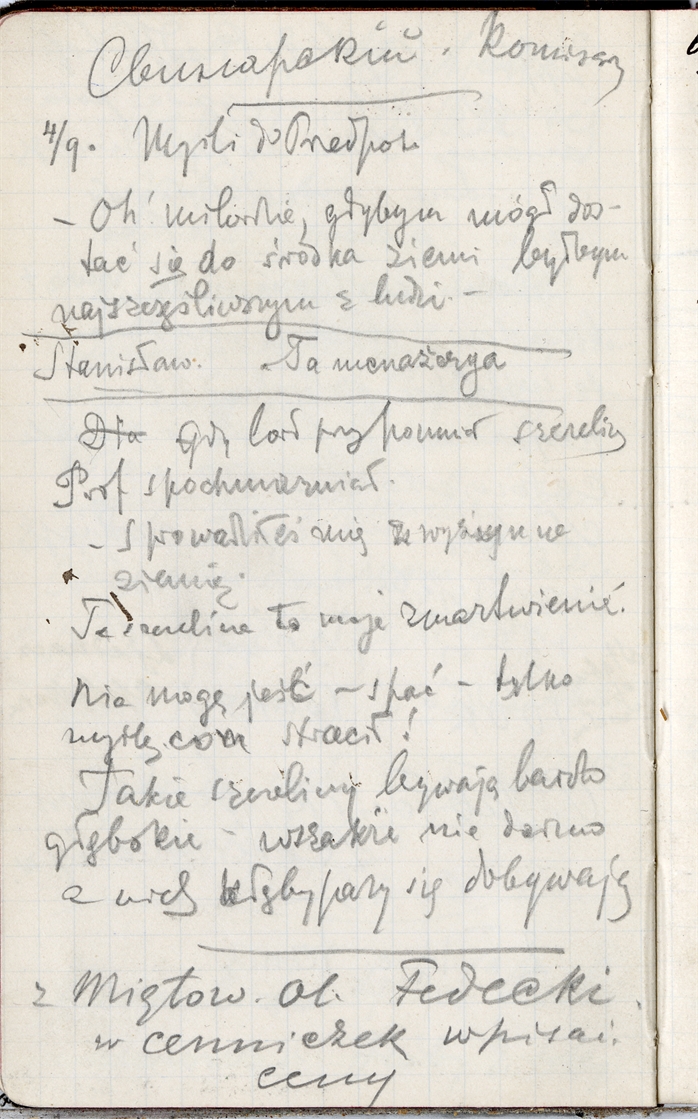 Свинарскій. Komisarz
4/9. Myśli do Przedpot.
– Oh! milordzie, gdybym mógł dos-
tać się do środka ziemi byłbym
najszczęśliwszym z ludzi. –
Stanisław. Ta menażerya
Dla Gdy lord przypomniał szczeliny
Prof spochmurniał.
– Sprowadziłeś mię z wyżyn na
ziemię.
Ta szczelina to moje zmartwienie.
Nie mogę jeść – spać – tylko
myślę com stracił!
Takie szczeliny bywają bardzo
głębokie – wszakże nie darmo
z nich kłęby pary się dobywają
z Miętow. Ol. Fedecki.
w cenniczek wpisać.
ceny